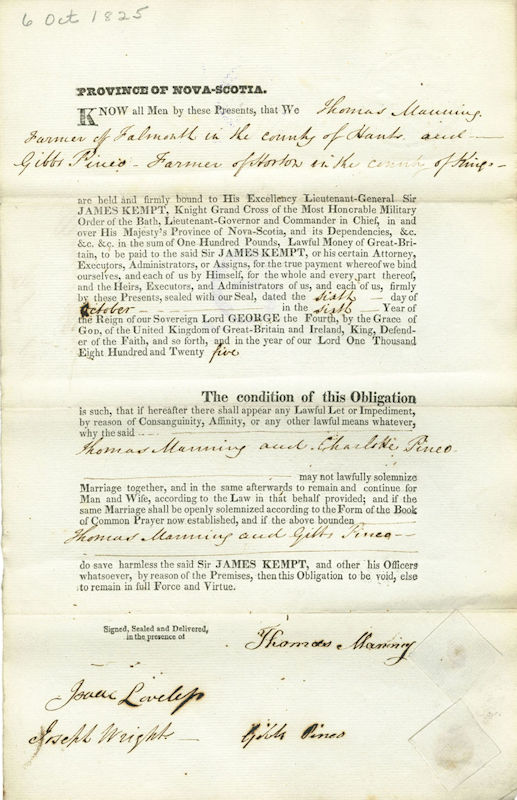 6 Oct 1825
PROVINCE OF NOVA-SCOTIA.
KNOW all Men by these Presents, that We Thomas Manning
Farmer of Falmouth in the county of Hants and
Gibbs Pineo - Farmer of Horton in the county of Kings -
are held and firmly bound to His Excellency Lieutenant-General Sir
JAMES KEMPT, Knight Grand Cross of the Most Honorable Military
Order of the Bath, Lieutenant-Governor and Commander in Chief, in and
over His Majesty's Province of Nova-Scotia, and its Dependencies, &c.
&c. &c. in the sum of One Hundred Pounds, Lawful Money of Great-Bri-
tain, to be paid to the said Sir JAMES KEMPT, or his certain Attorney,
Executors, Administrators, or Assigns, for the true payment whereof we bind
ourselves, and each of us by Himself, for the whole and every part thereof,
and the Heirs, Executors, and Administrators of us, and each of us, firmly
by these Presents, sealed with our Seal, dated the sixth - day of
October - in the sixth - Year of
the Reign of our Sovereign Lord GEORGE the Fourth, by the Grace of
GOD, of the United Kingdom of Great-Britain and Ireland, King, Defend-
er of the Faith, and so forth, and in the year of our Lord One Thousand
Eight Hundred and Twenty five
The condition of this Obligation
is such, that if hereafter there shall appear any Lawful Let or Impediment,
by reason of Consanguinity, Affinity, or any other lawful means whatever,
why the said
Thomas Manning and Charlotte Pineo.
may not lawfully solemnize
Marriage together, and in the same afterwards to remain and continue for
Man and Wife, according to the Law in that behalf provided; and if the
same Marriage shall be openly solemnized according to the Form of the Book
of Common Prayer now established, and if the above bounden
Thomas Manning and Gibbs Pineo -
do save harmless the said Sir JAMES KEMPT, and other his Officers
whatsoever, by reason of the Premises, then this Obligation to be void, else
to remain in full Force and Virtue.
Signed, Sealed and Delivered,
in the presence of
Thomas Manning
Isaac Loveless
Joseph Wright
Gibbs Pineo